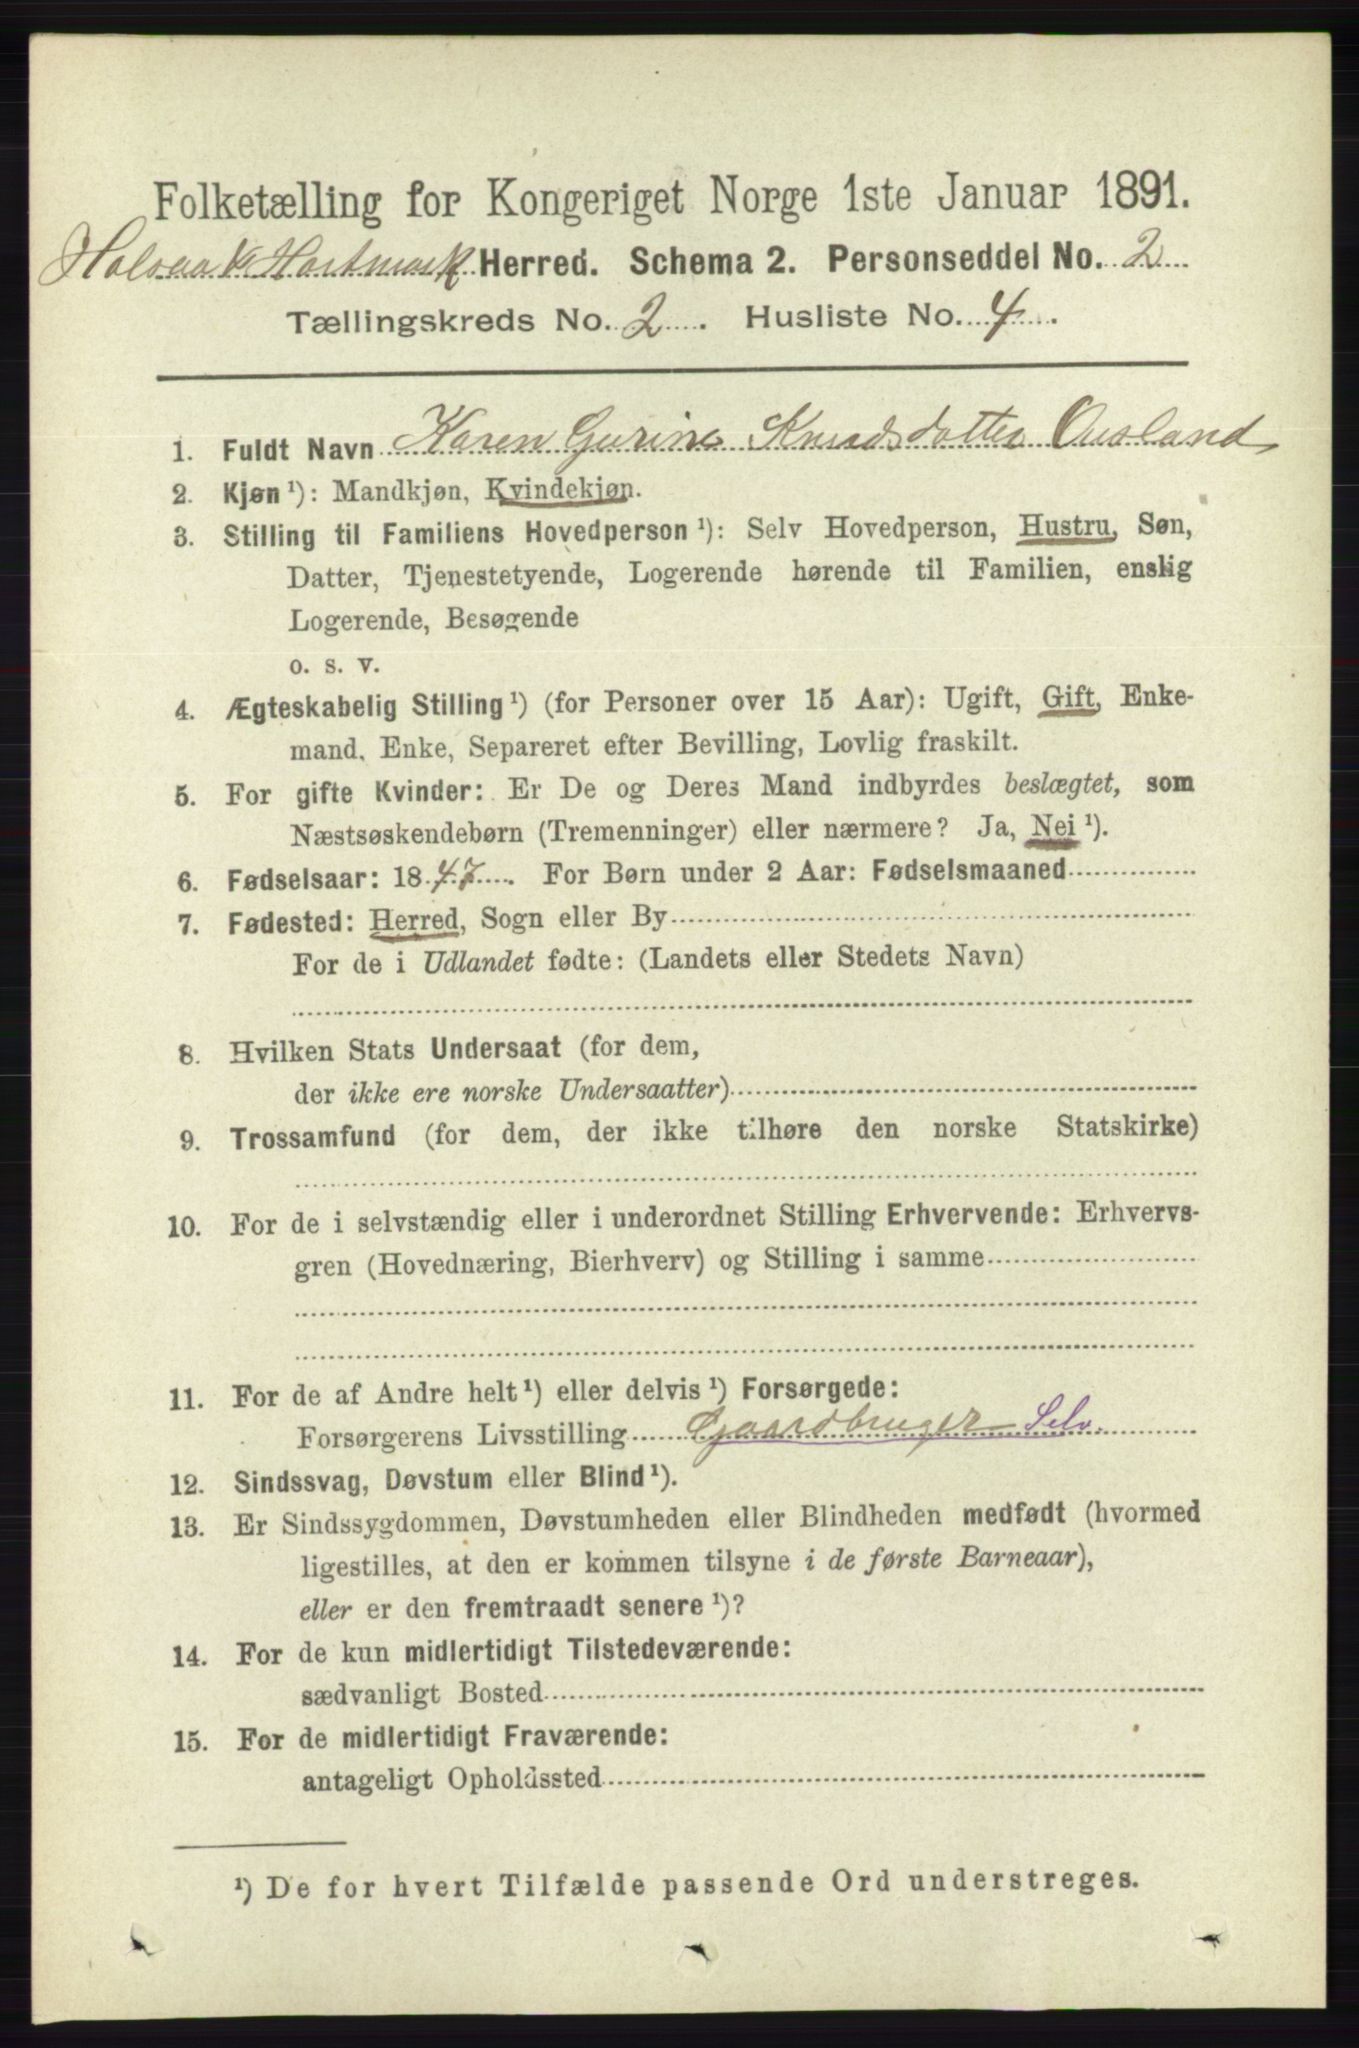 Folketælling for Kongeriget Norge 1ste Januar 1891.
Halsaa & Hartmark Herred. Schema 2. Personseddel No. 2
Tællingskreds No. 2. Husliste No. 4.
1. Fuldt Navn Karen Gurine Knudsdatter Ousland
2. Kjøn ¹): Mandkjøn, Kvindekjøn.
3. Stilling til Familiens Hovedperson ¹): Selv Hovedperson, Hustru, Søn,
Datter, Tjenestetyende, Logerende hørende til Familien, enslig
Logerende, Besøgende
o. s. v.
4. Ægteskabelig Stilling ¹) (for Personer over 15 Aar): Ugift, Gift, Enke-
mand, Enke, Separeret efter Bevilling, Lovlig fraskilt.
5. For gifte Kvinder: Er De og Deres Mand indbyrdes beslægtet, som
Næstsøskendebørn (Tremenninger) eller nærmere? Ja, Nei ¹).
6. Fødselsaar: 1847. For Børn under 2 Aar: Fødselsmaaned
7. Fødested: Herred, Sogn eller By
For de i Udlandet fødte: (Landets eller Stedets Navn)
8. Hvilken Stats Undersaat (for dem,
der ikke ere norske Undersaatter)
9. Trossamfund (for dem, der ikke tilhøre den norske Statskirke)
10. For de i selvstændig eller i underordnet Stilling Erhvervende: Erhvervs-
gren (Hovednæring, Bierhverv) og Stilling i samme
11. For de af Andre helt ¹) eller delvis ¹) Forsørgede:
Forsørgerens Livsstilling Gaardbruger Selv.
12. Sindssvag, Døvstum eller Blind ¹).
13. Er Sindssygdommen, Døvstumheden eller Blindheden medfødt (hvormed
ligestilles, at den er kommen tilsyne i de første Barneaar),
eller er den fremtraadt senere ¹)?
14. For de kun midlertidigt Tilstedeværende:
sædvanligt Bosted
15. For de midlertidigt Fraværende:
antageligt Opholdssted
¹) De for hvert Tilfælde passende Ord understreges.